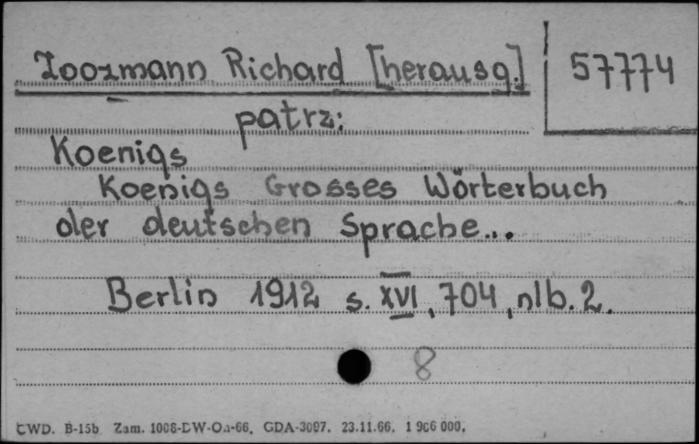 Zoozmann Richard [herausg.]
57774
patrz:
Koenigs
Koenigs Grosses Wörterbuch
der deutschen Sprache...
Berlin 1912 s. XVI, 704, nlb. 2.
8
CWD. B-15b Zam. 1008-DW-Oa-66. GDA-3097. 23.11.66. 1 906 000.